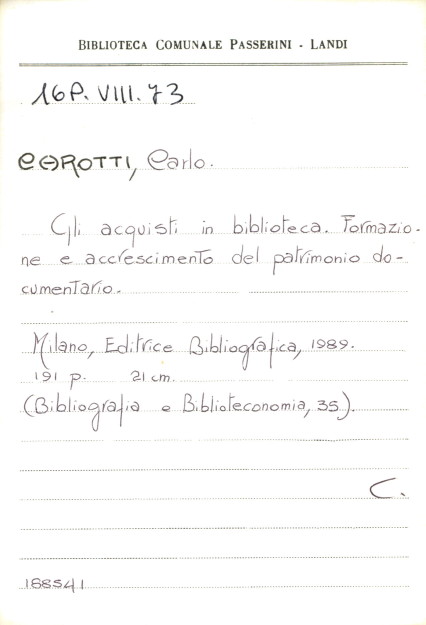 BIBLIOTECA COMUNALE PASSERINI - LANDI
16P. VIII. 73
CAROTTI, Carlo.
Gli acquisti in biblioteca. Formazio-
ne e accrescimento del patrimonio do-
cumentario.
Milano, Editrice Bibliografica, 1989.
191 p. 21 cm.
(Bibliografia e Biblioteconomia, 35).
C.
188541